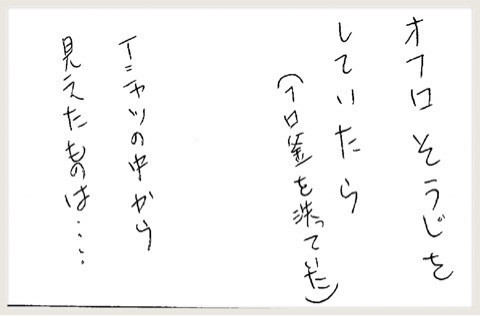 オフロそうじを
していたら
(フロ釜を洗っていた)
Tシャツの中から
見えたものは‥‥